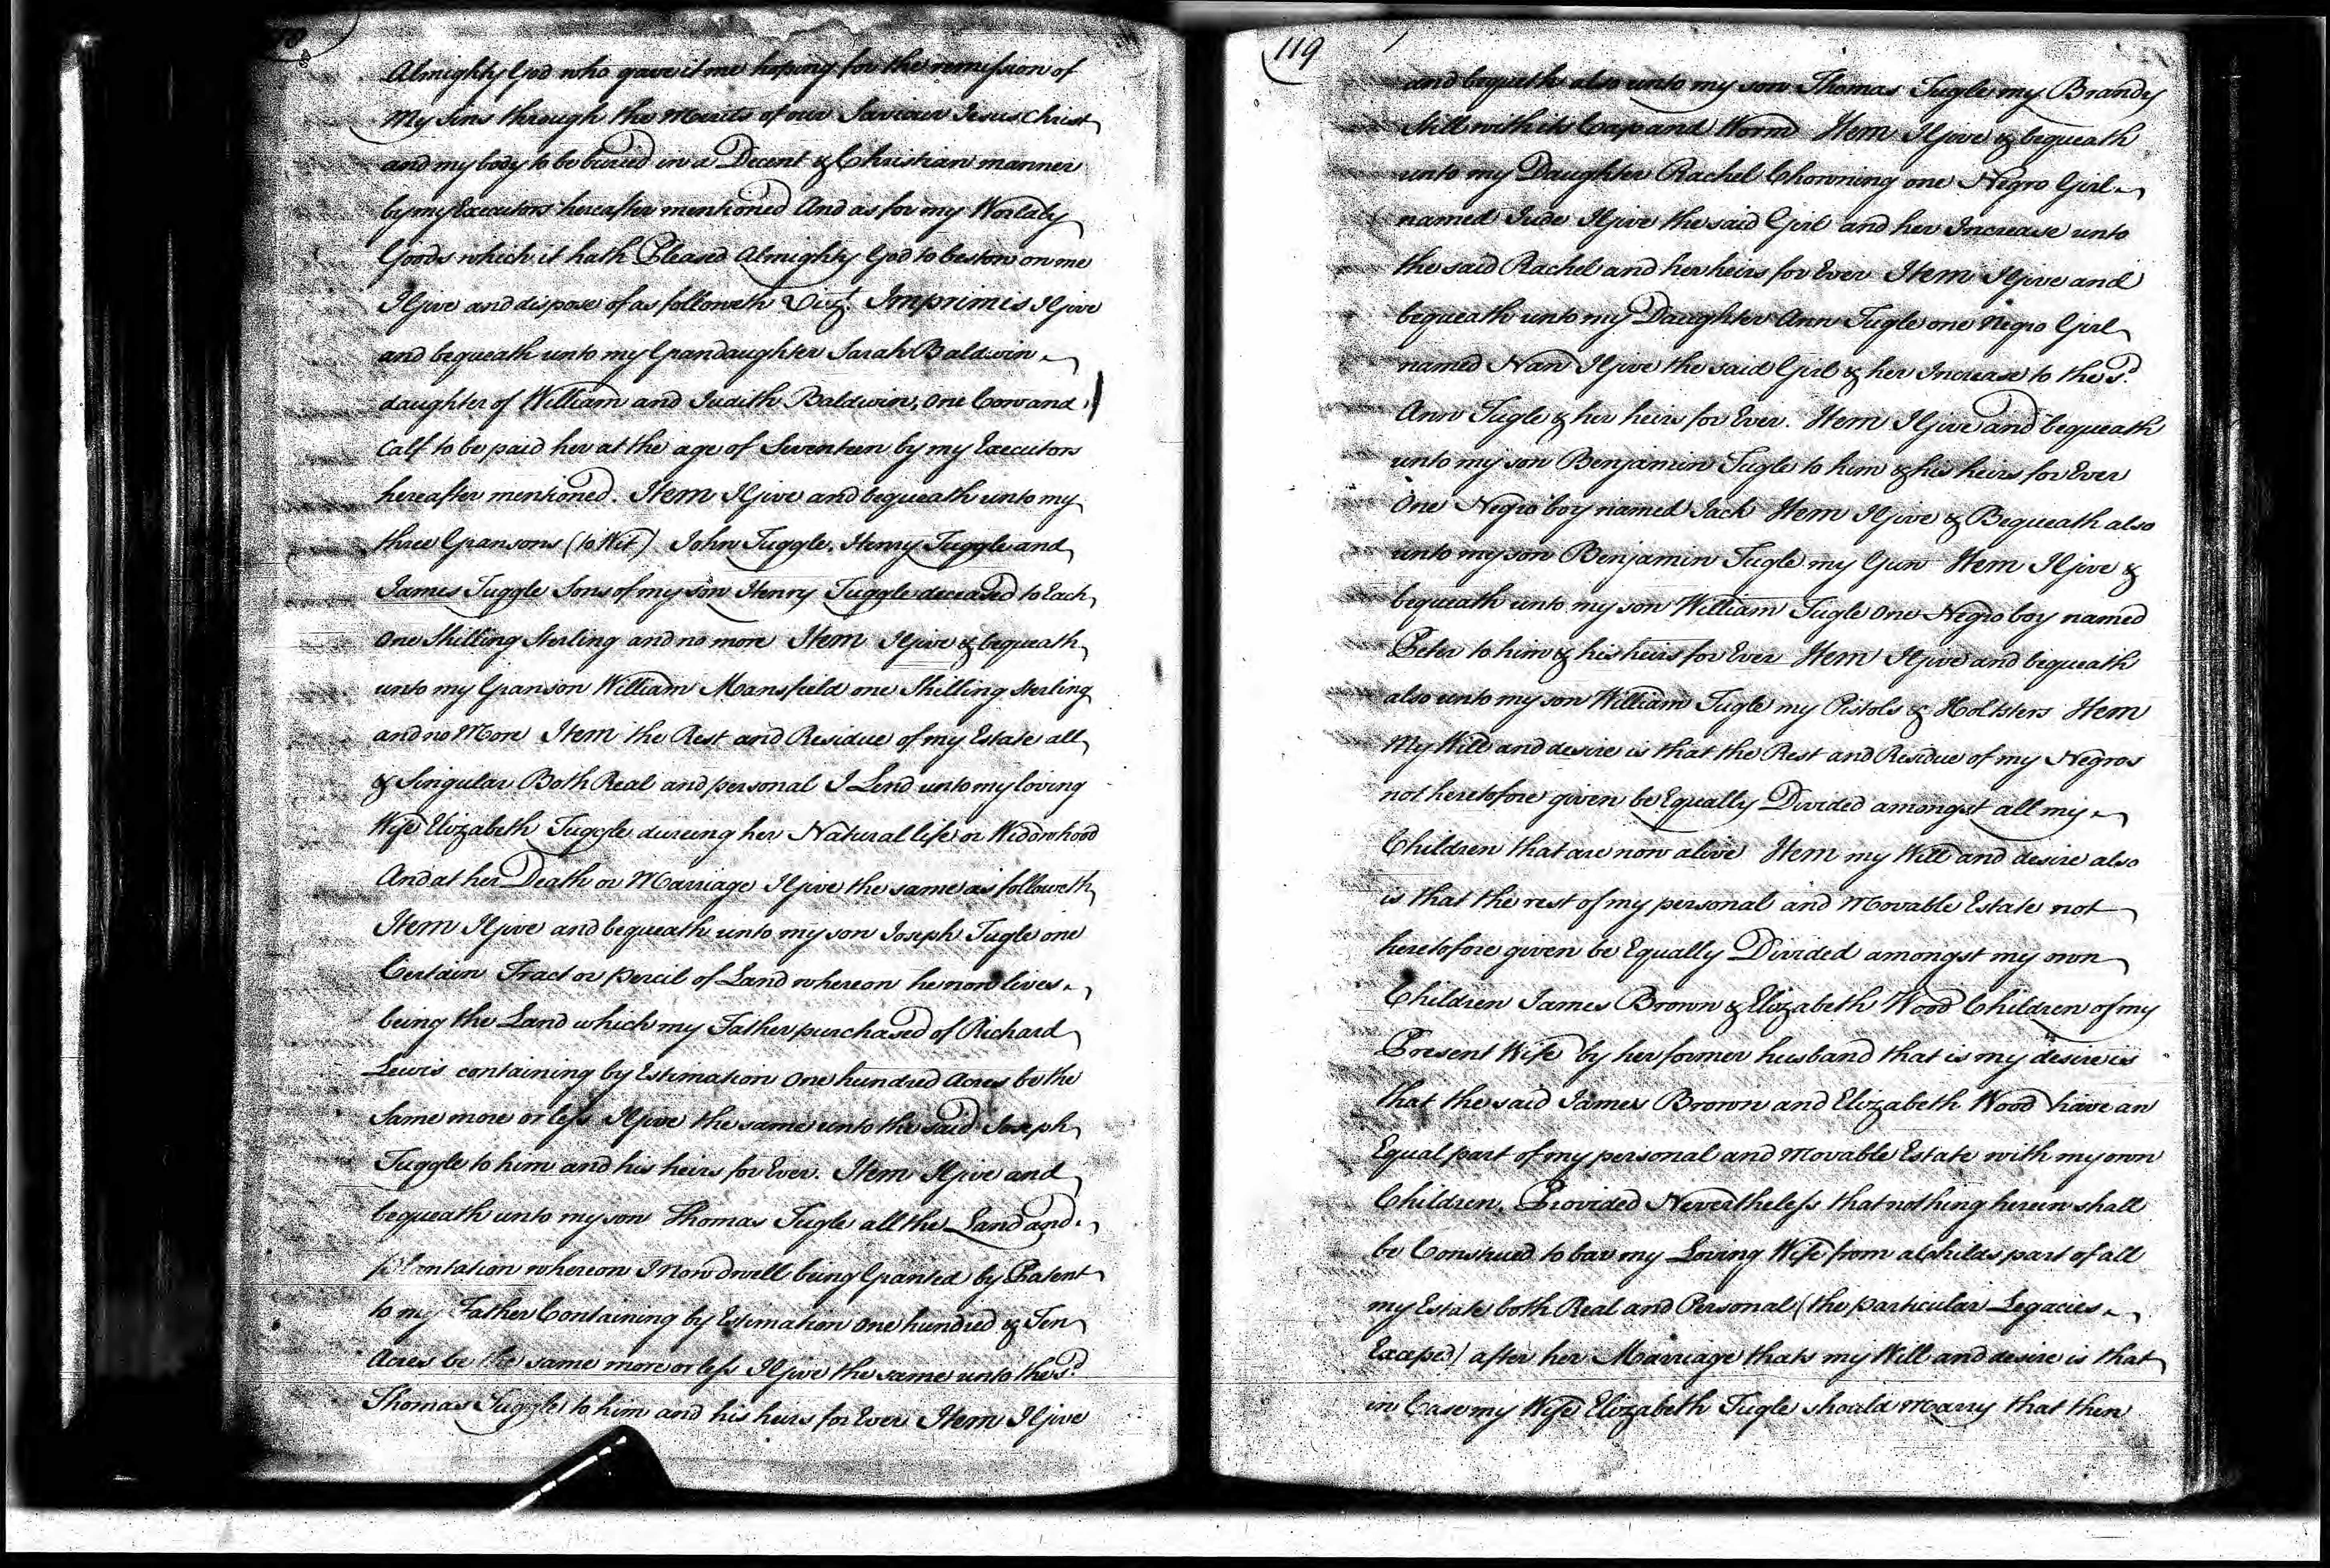 Almighty God who gave it me hoping for the remission of
My Sins through the Merits of our Saviour Jesus Christ
and my body to be buried in a Decent & Christian manner
by my Executors hereafter mentioned And as for my Worldly
Goods which it hath Pleased Almighty God to bestow on me
I Give and dispose of as followeth Vizt. Imprimis I Give
and bequeath unto my Grandaughter Sarah Baldwin
daughter of William and Judith Baldwin, One Cow and
Calf to be paid her at the age of Seventeen by my Executors
hereafter mentioned. Item I Give and bequeath unto my
three Gransons (to Wit) John Tuggle, Henry Tuggle and
James Tuggle Sons of my son Henry Tuggle deceased to Each
One Shilling Sterling and no more Item I Give & bequeath
unto my Granson William Mansfield one Shilling Sterling
and no More Item the Rest and Residue of my Estate all
& Singular Both Real and personal I Lend unto my loving
Wife Elizabeth Tuggle dureing her Natural life or Widowhood
And at her Death or Marriage I Give the same as followeth
Item I Give and bequeath unto my son Joseph Tugle one
Certain Tract or percil of Land whereon he now lives
being the Land which my Father purchased of Richard
Lewis containing by Estimation One hundred Acres be the
Same more or less I Give the same unto the said Joseph
Tuggle to him and his heirs for Ever. Item I Give and
bequeath unto my son Thomas Tugle all the Land and
plantation whereon I Now dwell being Granted by Patent
to my Father Containing by Estimation One hundred & Ten
Acres be the same more or less I Give the same unto the sd.
Thomas Tuggle to him and his heirs for Ever Item I Give
119
and bequeth also unto my son Thomas Tugle my Brandy
Still with its Cap and Worm Item I Give & bequeath
unto my Daughter Rachel Chowning one Negro Girl
named Jude I Give the said Girl and her Increase unto
the said Rachel and her heirs for Ever Item I Give and
bequeath unto my Daughter Ann Tugle one Negro Girl
named Nan I Give the said Girl & her Increase to the sd.
Ann Tugle & her heirs for Ever. Item I Give and bequeath
unto my son Benjamin Tugle to him & his heirs for Ever
One Negro boy named Jack Item I Give & Bequeath also
unto my son Benjamin Tugle my Gun Item I Give &
bequeath unto my son William Tugle One Negro boy named
Peter to him & his heirs for Ever Item I Give and bequeath
also unto my son William Tugle my Pistols & Holtsters Item
My Will and desire is that the Rest and Residue of my Negros
not heretofore given be Equally Divided amongst all my
Children that are now alive Item my Will and desire also
is that the rest of my personal and Movable Estate not
heretofore given be Equally Divided amongst my own
Children James Brown & Elizabeth Wood Children of my
Present Wife by her former husband that is my desire is
that the said James Brown and Elizabeth Wood have an
Equal part of my personal and Movable Estate with my own
Children. Provided Nevertheless that nothing herein shall
be Construed to bar my Loving Wife from a Childs part of all
my Estate both Real and Personal (the particular Legacies
Excepd) after her Marriage thats my Will and desire is that
in Case my Wife Elizabeth Tugle should Marry that then